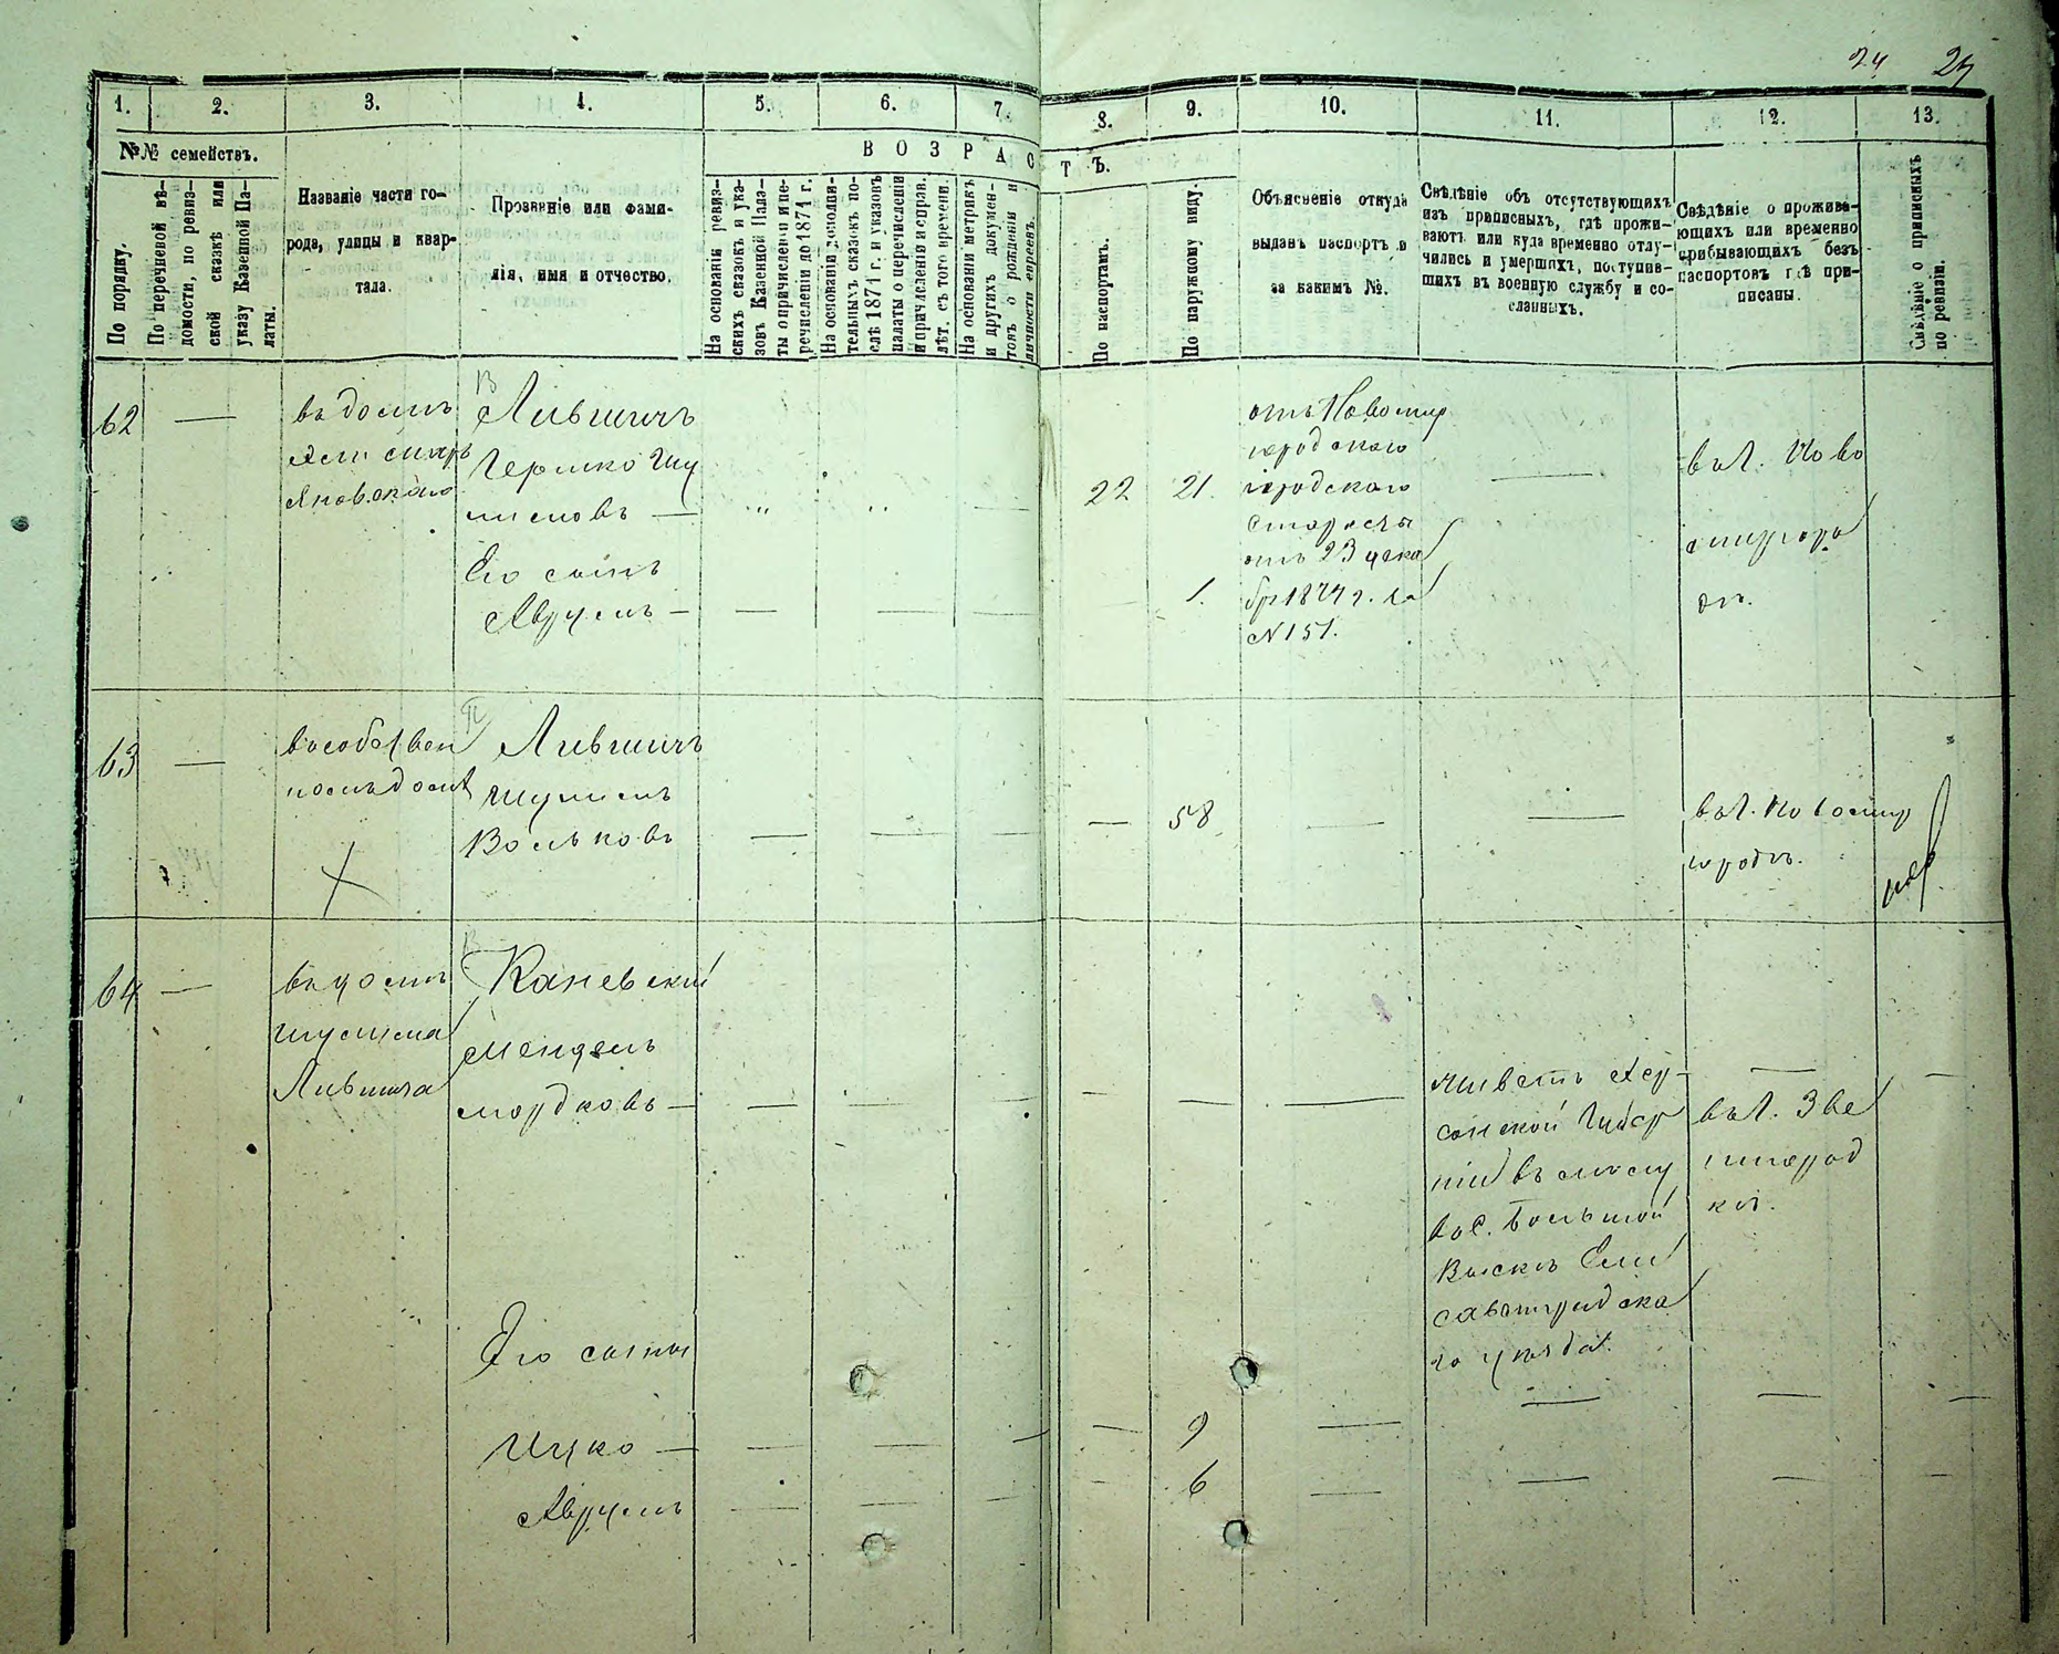 24 25
1. 2. 3. 4. 5. 6. 7. 8. 9. 10. 11. 12. 13.
№№ семействъ.
По порядку.
По перечневой вѣ-
домости, по ревиз-
ской сказкѣ или
указу Казенной Па-
латы.
Названіе части го-
рода, улицы и квар-
тала.
Прозваніе или фами-
лія, имя и отчество.
ВОЗРАСТЪ.
На основаніи ревиз-
скихъ сказокъ и ука-
зовъ Казенной Пала-
ты о причислени и пе-
речислени до 1871 г.
На основаніи дополни-
тельныхъ сказокъ по-
слѣ 1871 г. и указовъ
палаты о перечисленіи
и причисленіи и справ.
лѣт. съ того времени.
На основаніи метрикъ
и другихъ докумен-
товъ о рожденіи и
личности евреевъ.
По паспортамъ.
По наружному виду.
Объясненіе откуда
выданъ паспортъ и
за какимъ №.
Свѣдѣніе объ отсутствующихъ
изъ приписныхъ, гдѣ прожи-
ваютъ или куда временно отлу-
чились и умершихъ, поступив-
шихъ въ военную службу и со-
сланныхъ.
Свѣдѣніе о прожива-
ющихъ или временно
прибывающихъ безъ
паспортовъ гдѣ при-
писаны.
Свѣдѣніе о приписныхъ
по ревизіи.
62 —
въ домѣ
Яновскаго
В
Лившичъ
Гершко Шу
лимовъ —
Его сынъ
Аврумъ —
22 21.
1.
отъ Новомир
городскаго
городскаго
Старосты
отъ 23 дека
бря 1874 г. за
№ 151.
въ г. Ново
миргоро
дѣ.
63 —
въ собствен
номъ домѣ
Лившичъ
Шулимъ
Вольковъ
58
въ г. Новомир
городѣ.
64 —
въ домѣ
Шулима
Лившича
В
Каневскій
Мендель
Мордковъ —
живетъ Хер-
сонской Губер
ніи въ
Большой
Вискѣ Ели
саветградска
го уѣзда.
въ г. Зве
нигород
кѣ.
Его сыны
Ицко — 9
Аврумъ 6